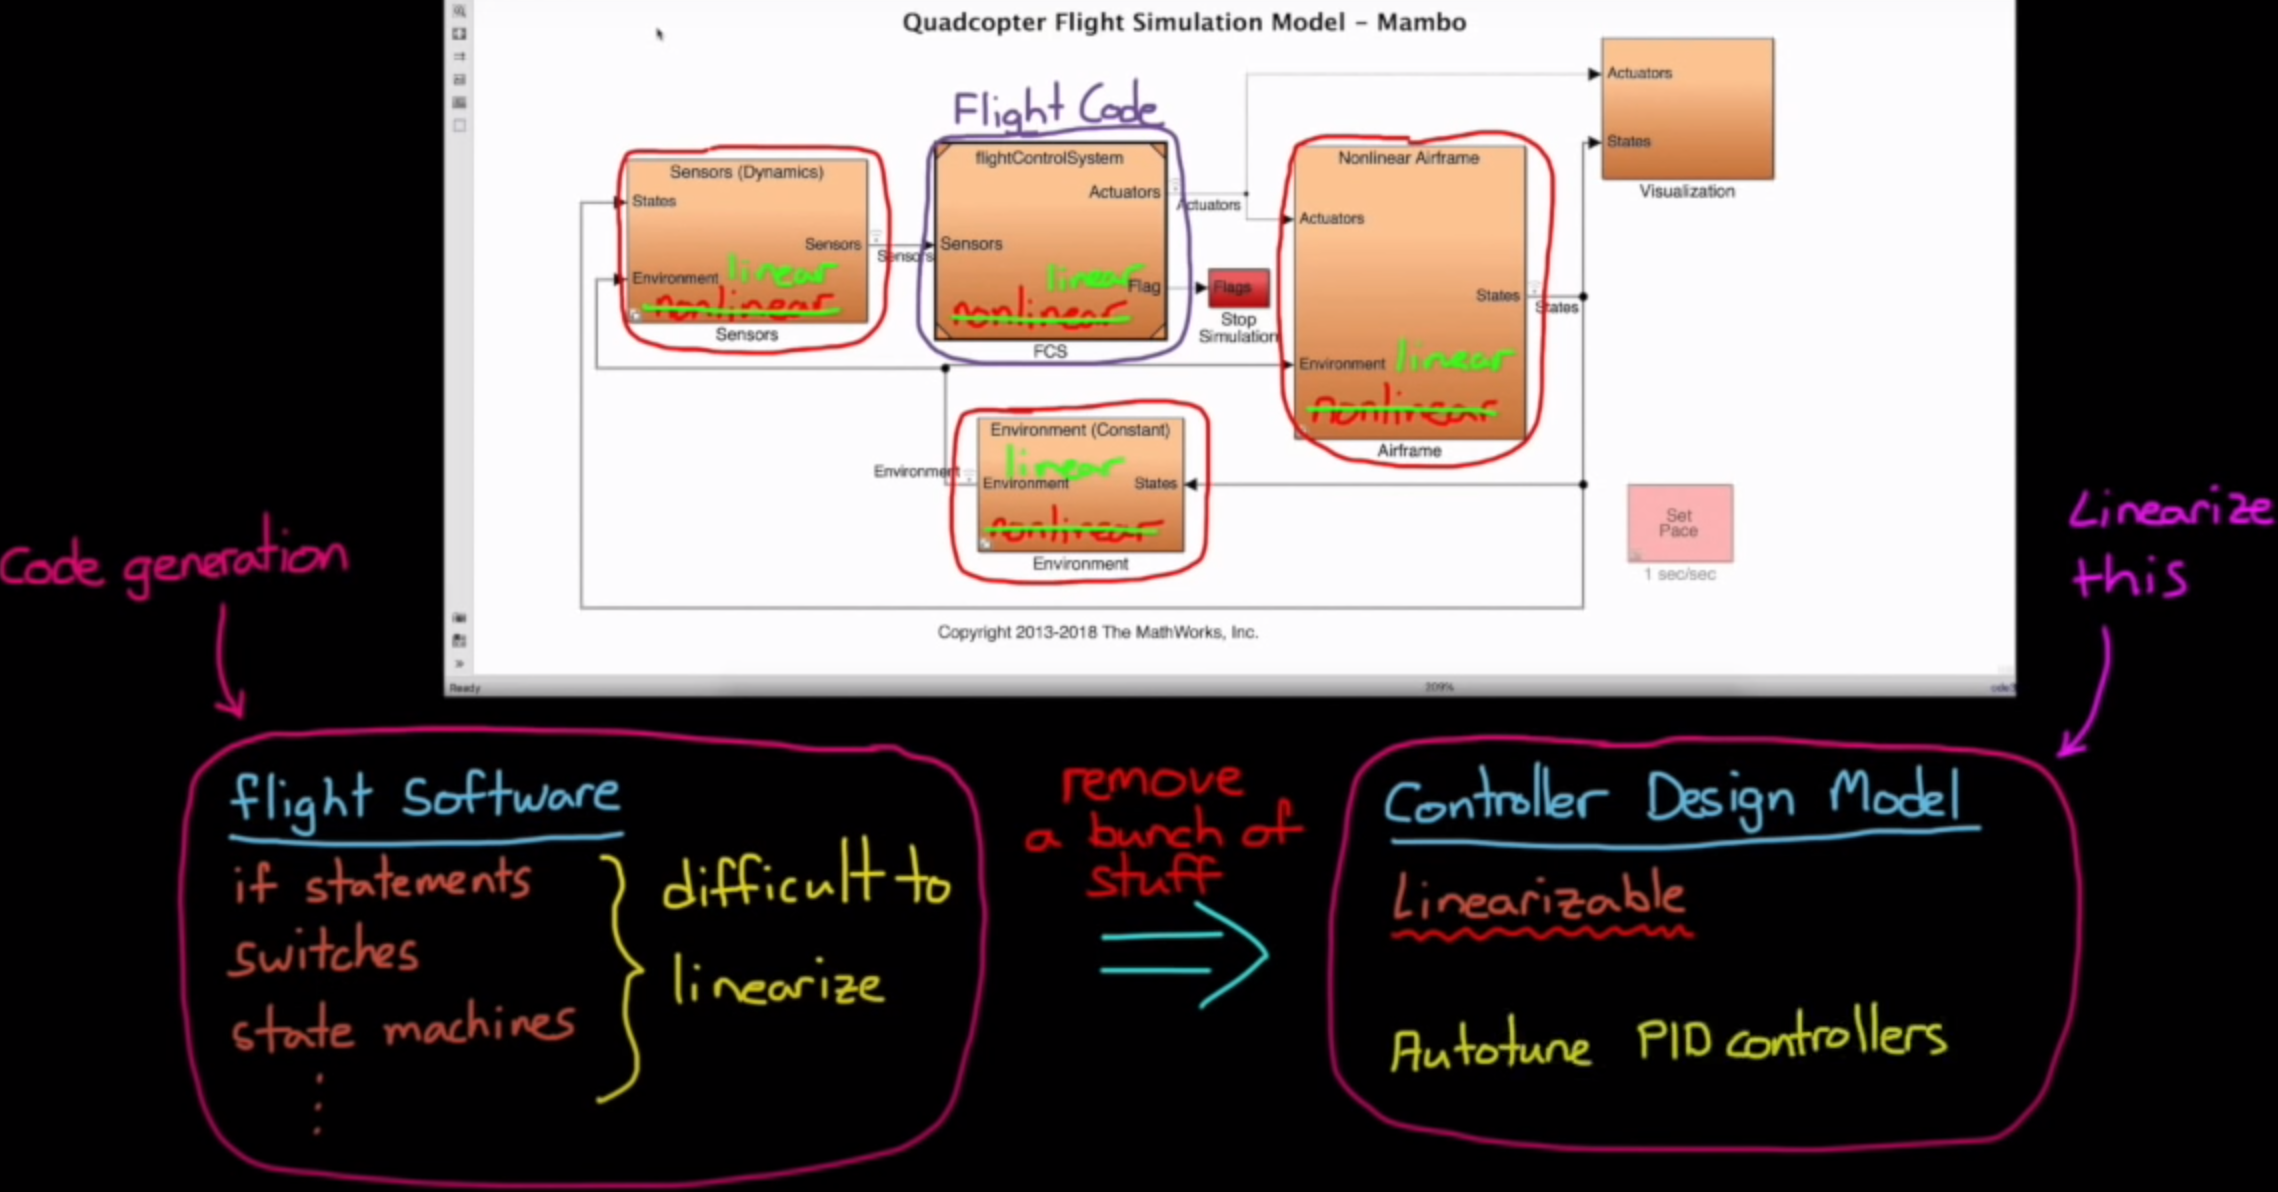 Quadcopter Flight Simulation Model - Mambo
Flight Code
Sensors (Dynamics)
States
Sensors
Environment
linear
nonlinear
Sensors
Sensors
flightControlSystem
Actuators
Sensors
linear
Flag
nonlinear
FCS
Actuators
Flags
Stop
Simulation
Nonlinear Airframe
Actuators
States
Environment
linear
nonlinear
Airframe
States
Actuators
States
Visualization
Environment (Constant)
linear
Environment
States
nonlinear
Environment
Environment
Set
Pace
1 sec/sec
Copyright 2013-2018 The MathWorks, Inc.
Ready
209%
Code generation
Linearize
this
flight software
if statements
switches
state machines
difficult to
linearize
remove
a bunch of
stuff
Controller Design Model
Linearizable
Autotune PID controllers